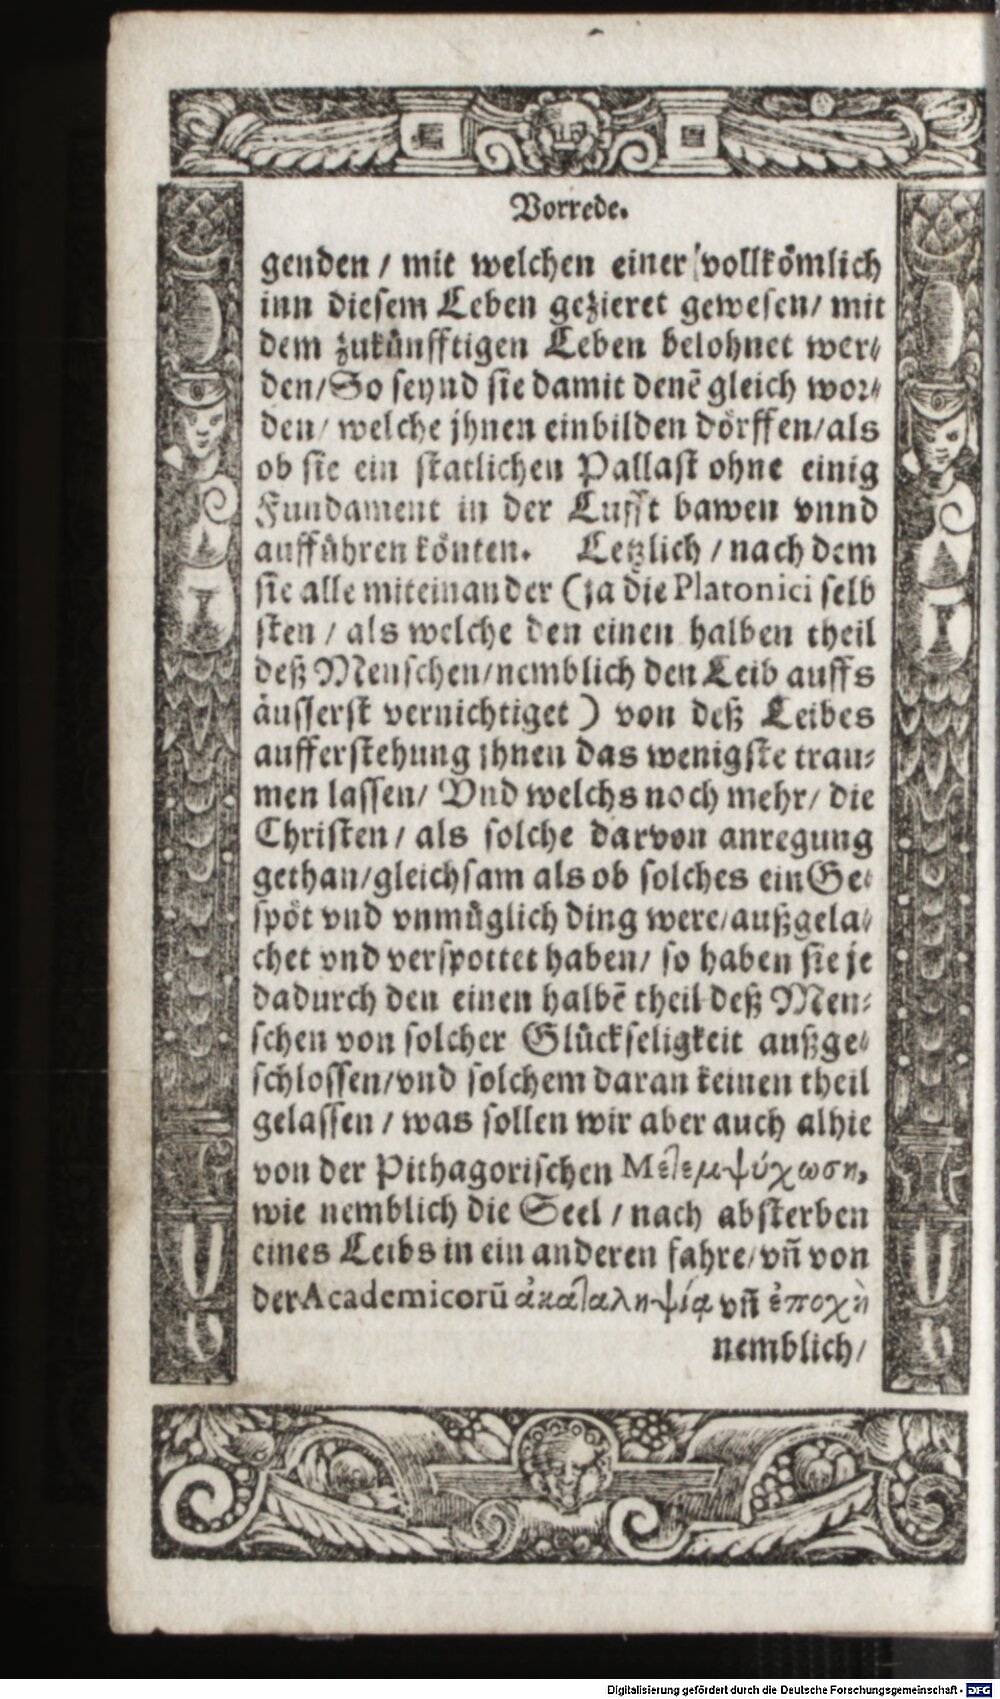 Vorrede.
genden / mit welchen einer vollkömlich
inn diesem Leben gezieret gewesen / mit
dem zukünfftigen Leben belohnet wer⸗
den / So seynd sie damit denē gleich wor⸗
den / welche jhnen einbilden dörffen / als
ob sie ein statlichen Pallast ohne einig
Fundament in der Lufft bawen vnnd
aufführen könten. Letzlich / nach dem
sie alle miteinander (ja die Platonici selb
sten / als welche den einen halben theil
deß Menschen / nemblich den Leib auffs
äusserst vernichtiget) von deß Leibes
aufferstehung jhnen das wenigste trau⸗
men lassen / Vnd welchs noch mehr / die
Christen / als solche darvon anregung
gethan / gleichsam als ob solches ein Ge⸗
spöt vnd vnmüglich ding were / außgela⸗
chet vnd verspottet haben / so haben sie je
dadurch den einen halbē theil deß Men⸗
schen von solcher Glückseligkeit außge⸗
schlossen / vnd solchem daran keinen theil
gelassen / was sollen wir aber auch alhie
von der Pithagorischen Μετεμψύχωση,
wie nemblich die Seel / nach absterben
eines Leibs in ein anderen fahre / vn̄ von
der Academicorū ἀκαταληψίᾳ vn̄ ἐποχὴ
nemblich /
Digitalisierung gefördert durch die Deutsche Forschungsgemeinschaft - DFG